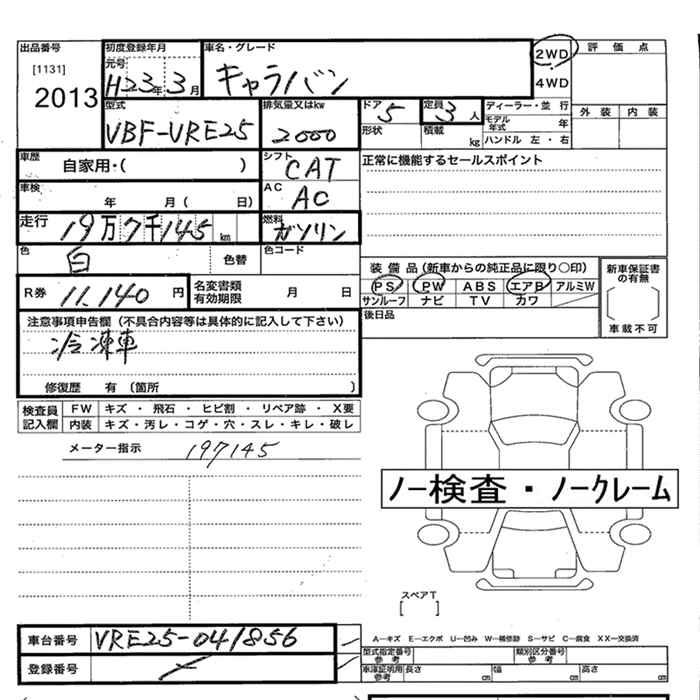 出品番号 初度登録年月 車名・グレード 2WD 評価点
[1131] 元号 H23年3月 キャラバン 4WD
2013 型式 排気量又はkw ドア 5 定員 3人 ディーラー・並行 外装 内装
VBF-VRE25 2000 形状 積載 kg モデル年式 年
ハンドル 左・右
車歴 自家用・( ) シフト CAT 正常に機能するセールスポイント
車検 年 月( 日) AC AC
走行 19万7千145km 燃料 ガソリン
色 白 色替 色コード
装備品(新車からの純正品に限り○印) 新車保証書の有無
R券 11,140円 名変書類有効期限 月 日 PS PW ABS エアB アルミW
サンルーフ ナビ TV カワ
車載不可
注意事項申告欄(不具合内容等は具体的に記入して下さい) 後日品
冷凍車
修復歴 有(箇所 )
検査員記入欄 FW キズ・飛石・ヒビ割・リペア跡・X要
内装 キズ・汚レ・コゲ・穴・スレ・キレ・破レ
メーター指示 197145
ノー検査・ノークレーム
スペアT
[ ]
車台番号 VRE25-041856
A―キズ E―エクボ U―凹み W―補修跡 S―サビ C―腐食 XX―交換済
登録番号
型式指定番号 参考 類別区分番号 参考
車庫証明用 参考 長さ cm 幅 cm 高さ cm